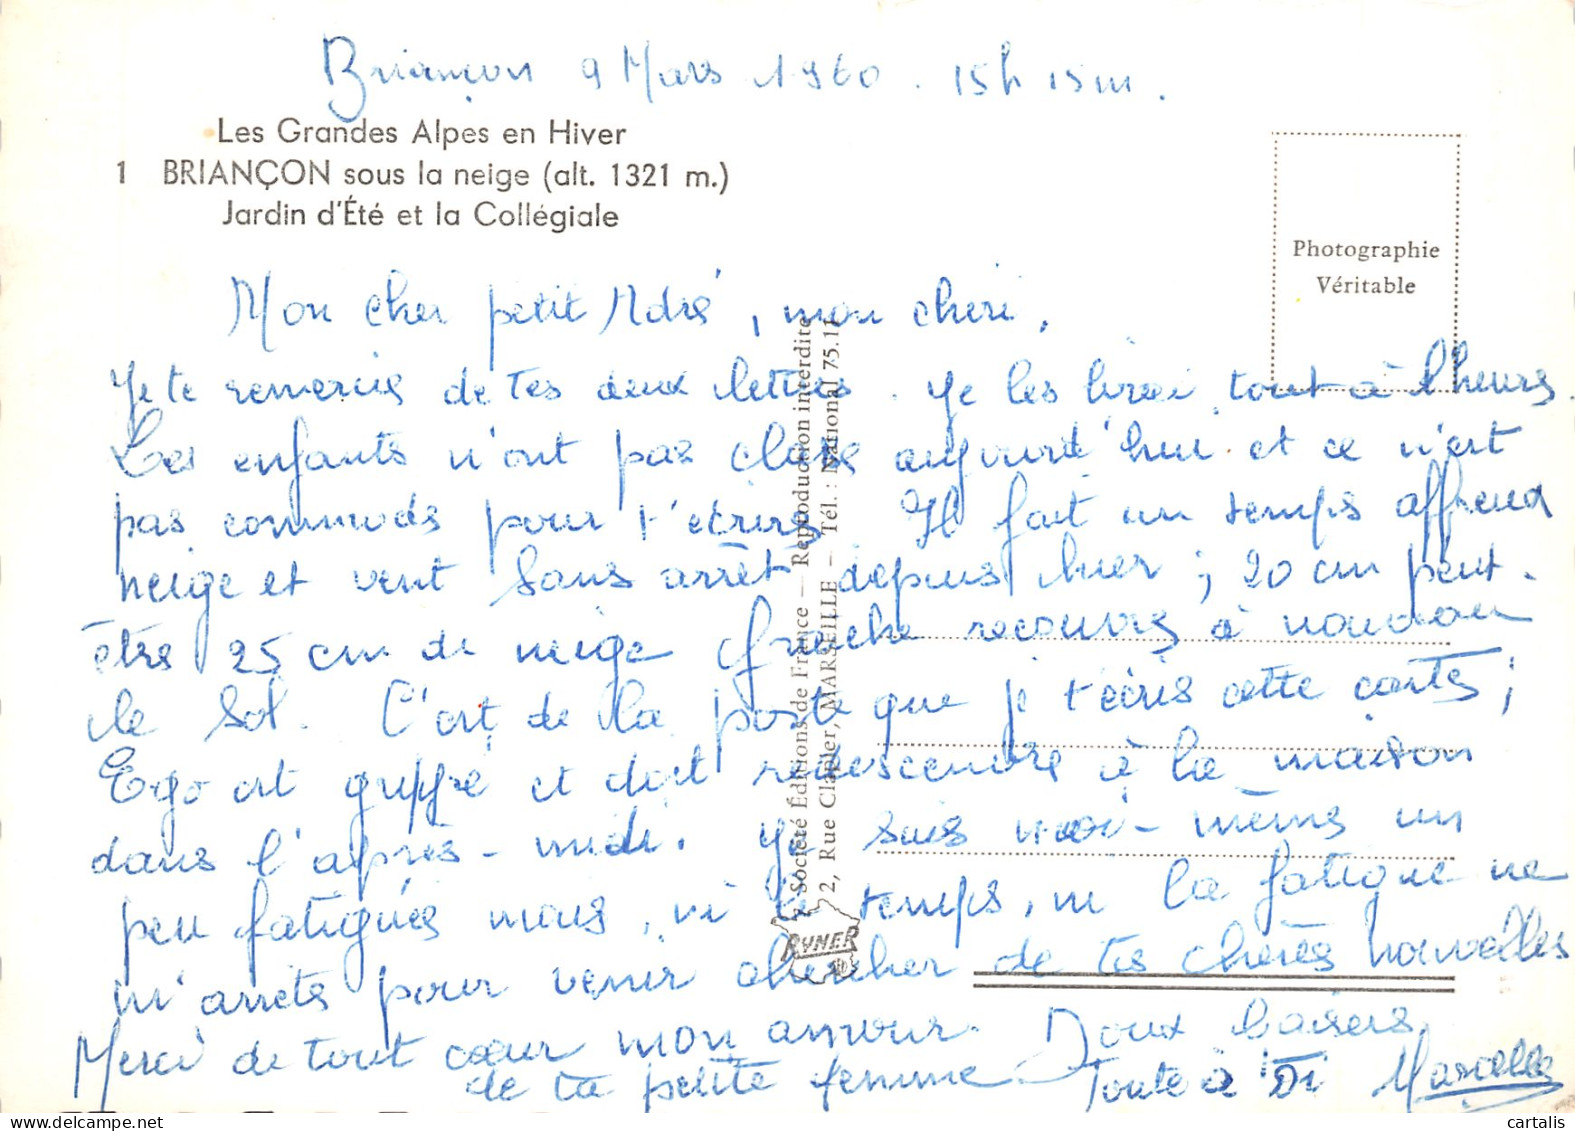 Briançon 9 Mars 1960. 15h 15m.
Les Grandes Alpes en Hiver
1 BRIANÇON sous la neige (alt. 1321 m.)
Jardin d'Été et la Collégiale
Photographie
Véritable
Mon cher petit André, mon chéri,
Je te remercie de tes deux lettres. Je les lirai tout à l'heure.
Les enfants n'ont pas classe aujourd'hui et ce n'est
pas commode pour t'écrire. Il fait un temps affreux
neige et vent sans arrêt depuis hier ; 20 cm peut-
être 25 cm de neige fraîche recouvre à nouveau
le sol. C'est de la poste que je t'écris cette carte ;
est grippé et doit redescendre à la maison
dans l'après-midi. Je suis moi-même un
peu fatiguée mais, ni le temps, ni la fatigue ne
m'arrête pour venir chercher de tes chères nouvelles
Merci de tout cœur mon amour. Doux baisers
de ta petite femme Toute à Toi Marcelle
Société Éditions de France — Reproduction interdite
72, Rue Clapier, MARSEILLE — Tél. : National 75.11
RYNER
cartalis